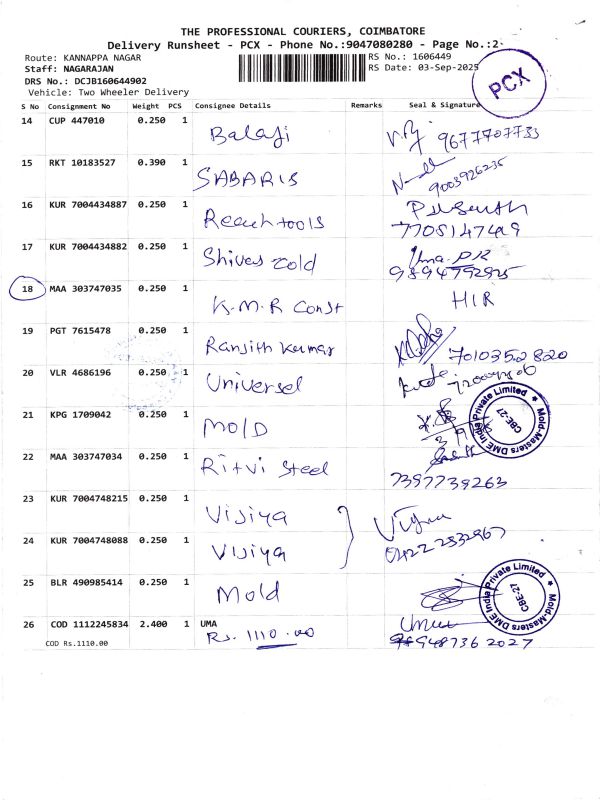 THE PROFESSIONAL COURIERS, COIMBATORE
Delivery Runsheet - PCX - Phone No.:9047080280 - Page No.:2
Route: KANNAPPA NAGAR RS No.: 1606449
Staff: NAGARAJAN RS Date: 03-Sep-2025
DRS No.: DCJB160644902
Vehicle: Two Wheeler Delivery
PCX
S No Consignment No Weight PCS Consignee Details Remarks Seal & Signature
14 CUP 447010 0.250 1 Balaji 9677707733
15 RKT 10183527 0.390 1 SABARIS 9003926235
16 KUR 7004434887 0.250 1 Reach tools
7708147419
17 KUR 7004434882 0.250 1 Shivas Zold
9894792925
18 MAA 303747035 0.250 1 K.M.R Const HIR
19 PGT 7615478 0.250 1 Ranjith Kumar 7010352820
20 VLR 4686196 0.250 1 Universel
21 KPG 1709042 0.250 1 MOLD
Mold-Masters DME India Private Limited
CBE-27
22 MAA 303747034 0.250 1 Ritvi Steel
7397739263
23 KUR 7004748215 0.250 1 Vijiya
24 KUR 7004748088 0.250 1 Vijiya 0422 2832967
25 BLR 490985414 0.250 1 Mold
Mold-Masters DME India Private Limited
CBE-27
26 COD 1112245834 2.400 1 UMA
COD Rs.1110.00 Rs. 1110.00 98948736 2027